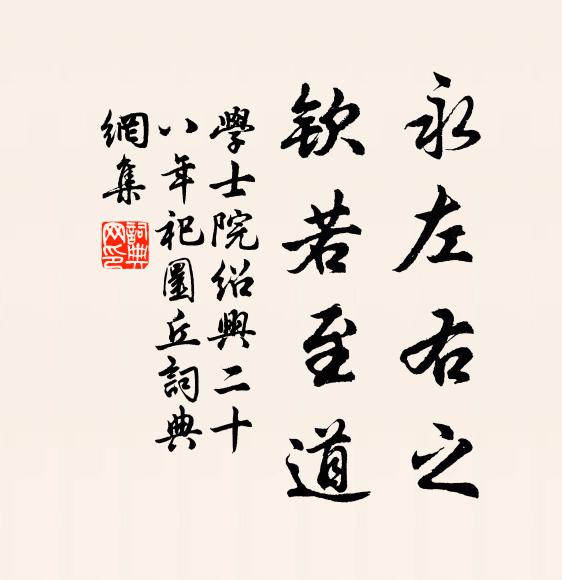 永左右之
欽若至道
學士院紹興二十
八年祀圜丘詞典
網集
詞典網印